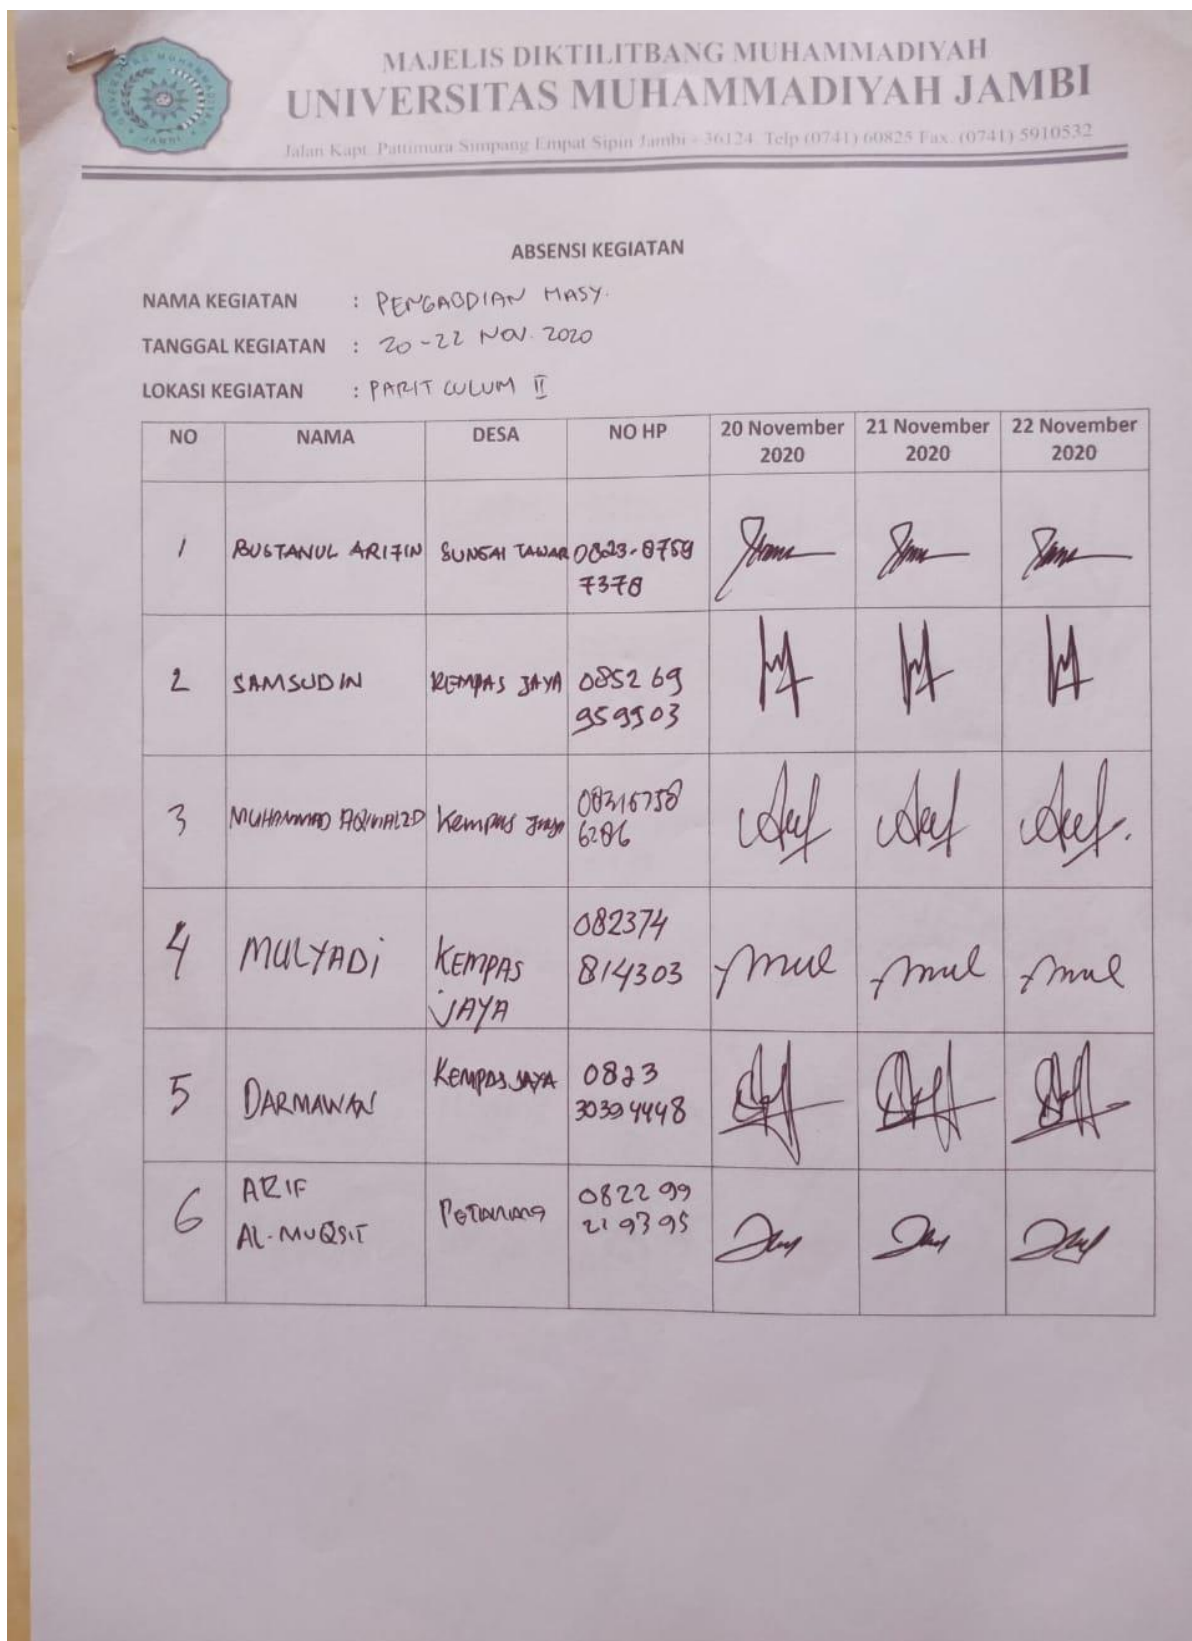 MAJELIS DIKTILITBANG MUHAMMADIYAH
UNIVERSITAS MUHAMMADIYAH JAMBI
Jalan Kapt. Pattimura Simpang Empat Sipin Jambi - 36124 Telp (0741) 60825 Fax. (0741) 5910532
ABSENSI KEGIATAN
NAMA KEGIATAN : PENGABDIAN MASY.
TANGGAL KEGIATAN : 20-22 NOV. 2020
LOKASI KEGIATAN : PARIT CULUM II
NO NAMA DESA NO HP 20 November 21 November 22 November
2020 2020 2020
1 BUSTANUL ARIFIN SUNGAI TAWAR 0823-8759
7378
2 SAMSUDIN KEMPAS JAYA 0852 69
959903
3 MUHAMMAD Kempas Jaya
6286
4 MULYADI KEMPAS 082374
JAYA 814303
5 DARMAWAN KEMPAS JAYA 0823
30394448
6 ARIF 0822 99
AL-MUQSIT 219395